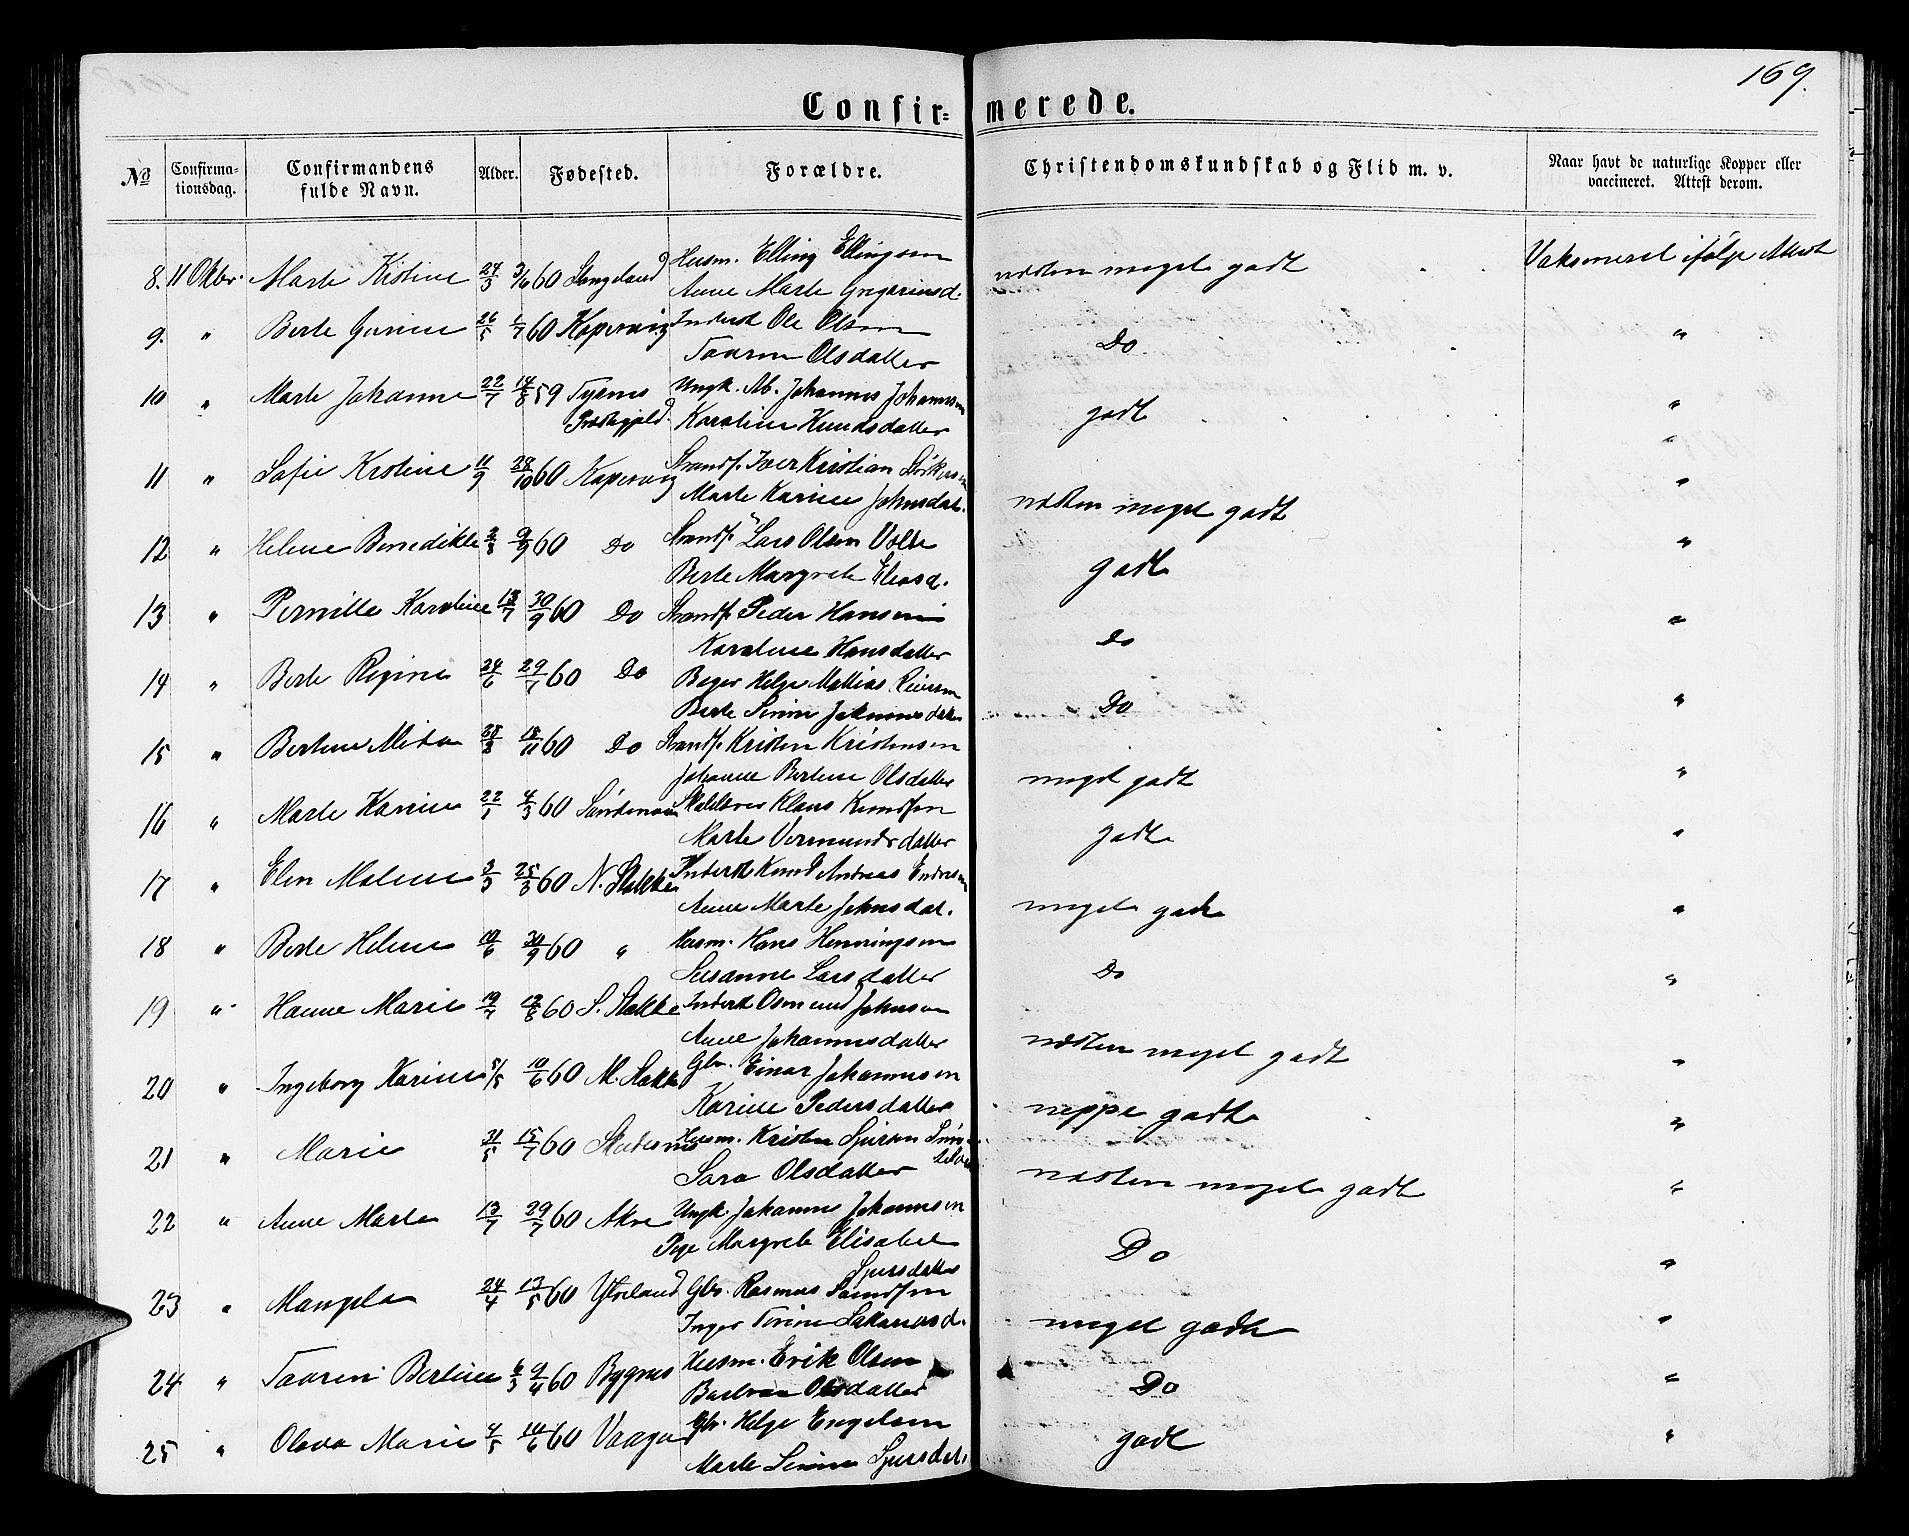 169.
Confirmerede.
No Confirmationsdag. Confirmandens fulde Navn. Alder. Fødested. Forældre. Christendomskundskab og Flid m. v. Naar havt de naturlige Kopper eller vaccineret. Attest derom.
8. 11 Oktbr. Marte Kistine 24/3 3/6 60 Langeland Husm. Elling Ellingsen næsten meget godt Vaksineret ifølge Attest
Anne Marte Gregoriusd.
9. " Berte Gurine 26/5 1/7 60 Kopervig Inderst Ole Olsen Do "
Taarin Olsdatter
10 " Marte Johanne 22/7 14/8 59 Tysnes Ungk. Ab. Johannes Johannesen godt "
Præstegjeld Karoline Knudsdatter "
11 " Sofie Kristine 11/9 28/10 60 Kopervig Strandf. Iver Kristian næsten meget godt "
Marte Karine Johnsdat.
12 " Helene Benedikte 2/3 9/9 60 Do Strandf. Lars Olsen godt "
Berte Margrete Eliasd.
13 " Pernille Karoline 13/7 30/9 60 Do Strandf. Peder Hansen Do "
Karoline Hansdatter
14 " Berte Regine 24/6 29/7 60 Do Bager Helge Mathias Do "
Berte Serine Johannesdatter
15 " Bertine Meta 18/11 60 Do Strandf. Kristen Kristensen meget godt "
Johanne Bertine Olsdatter
16 " Marte Karine 22/1 4/3 60 Klaus Knudsen godt "
Marte Vermundsdatter
17 " Elen Malene 3/3 25/3 60 N. Stokke Inderst Knud Andreas Endresen meget godt "
Anne Marte Johnsdat.
18 " Berte Helene 10/6 30/9 60 " Husm. Hans Henningsen Do "
Susanne Larsdatter
19 " Hanne Marie 19/7 12/8 60 S. Stokke Inderst Osmund Johnsen næsten meget godt "
Anne Johannesdatter
20 " Ingeborg Karine 5/5 10/6 60 M. Stokke Gbr. Einar Johannesen neppe godt "
Karine Pedersdatter
21 " Marie 31/5 15/7 60 Husm. Kristen Sjursen næsten meget godt "
Sara Olsdatter
22 " Anne Marta 13/7 29/7 60 Akre Ungk. Johannes Johannesen Do "
Pige Margrete Elisabet
Sjursdatter
23 " Mangela 24/4 13/5 60 Ytreland Gbr. Rasmus meget godt "
Inger Torine Sakariasd.
24 " Taarine Bertine 6/3 9/4 60 Bygnes Husm. Erik Olsen Do "
Barbra Olsdatter
25 " Olava Marie 4/5 10/6 60 Vaage Gbr. Helge Engelsen godt "
Marte Serine Sjursdat.